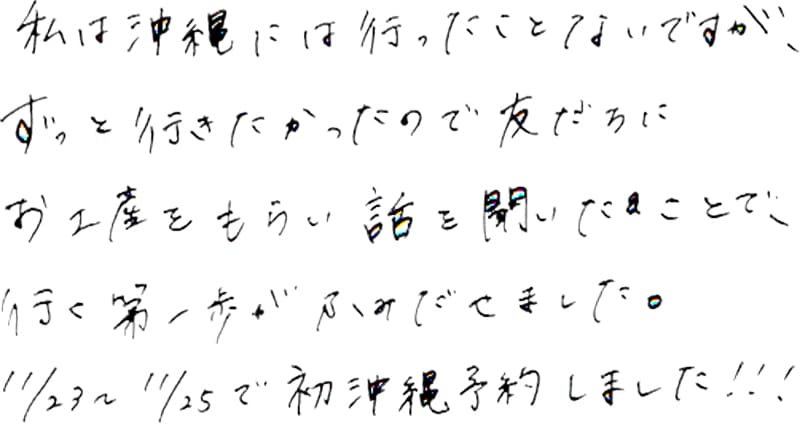 私は沖縄には行ったことないですが、
ずっと行きたかったので友だちに
お土産をもらい話を聞いたことで、
行く第一歩がふみだせました。
11/23〜11/25で初沖縄予約しました!!!